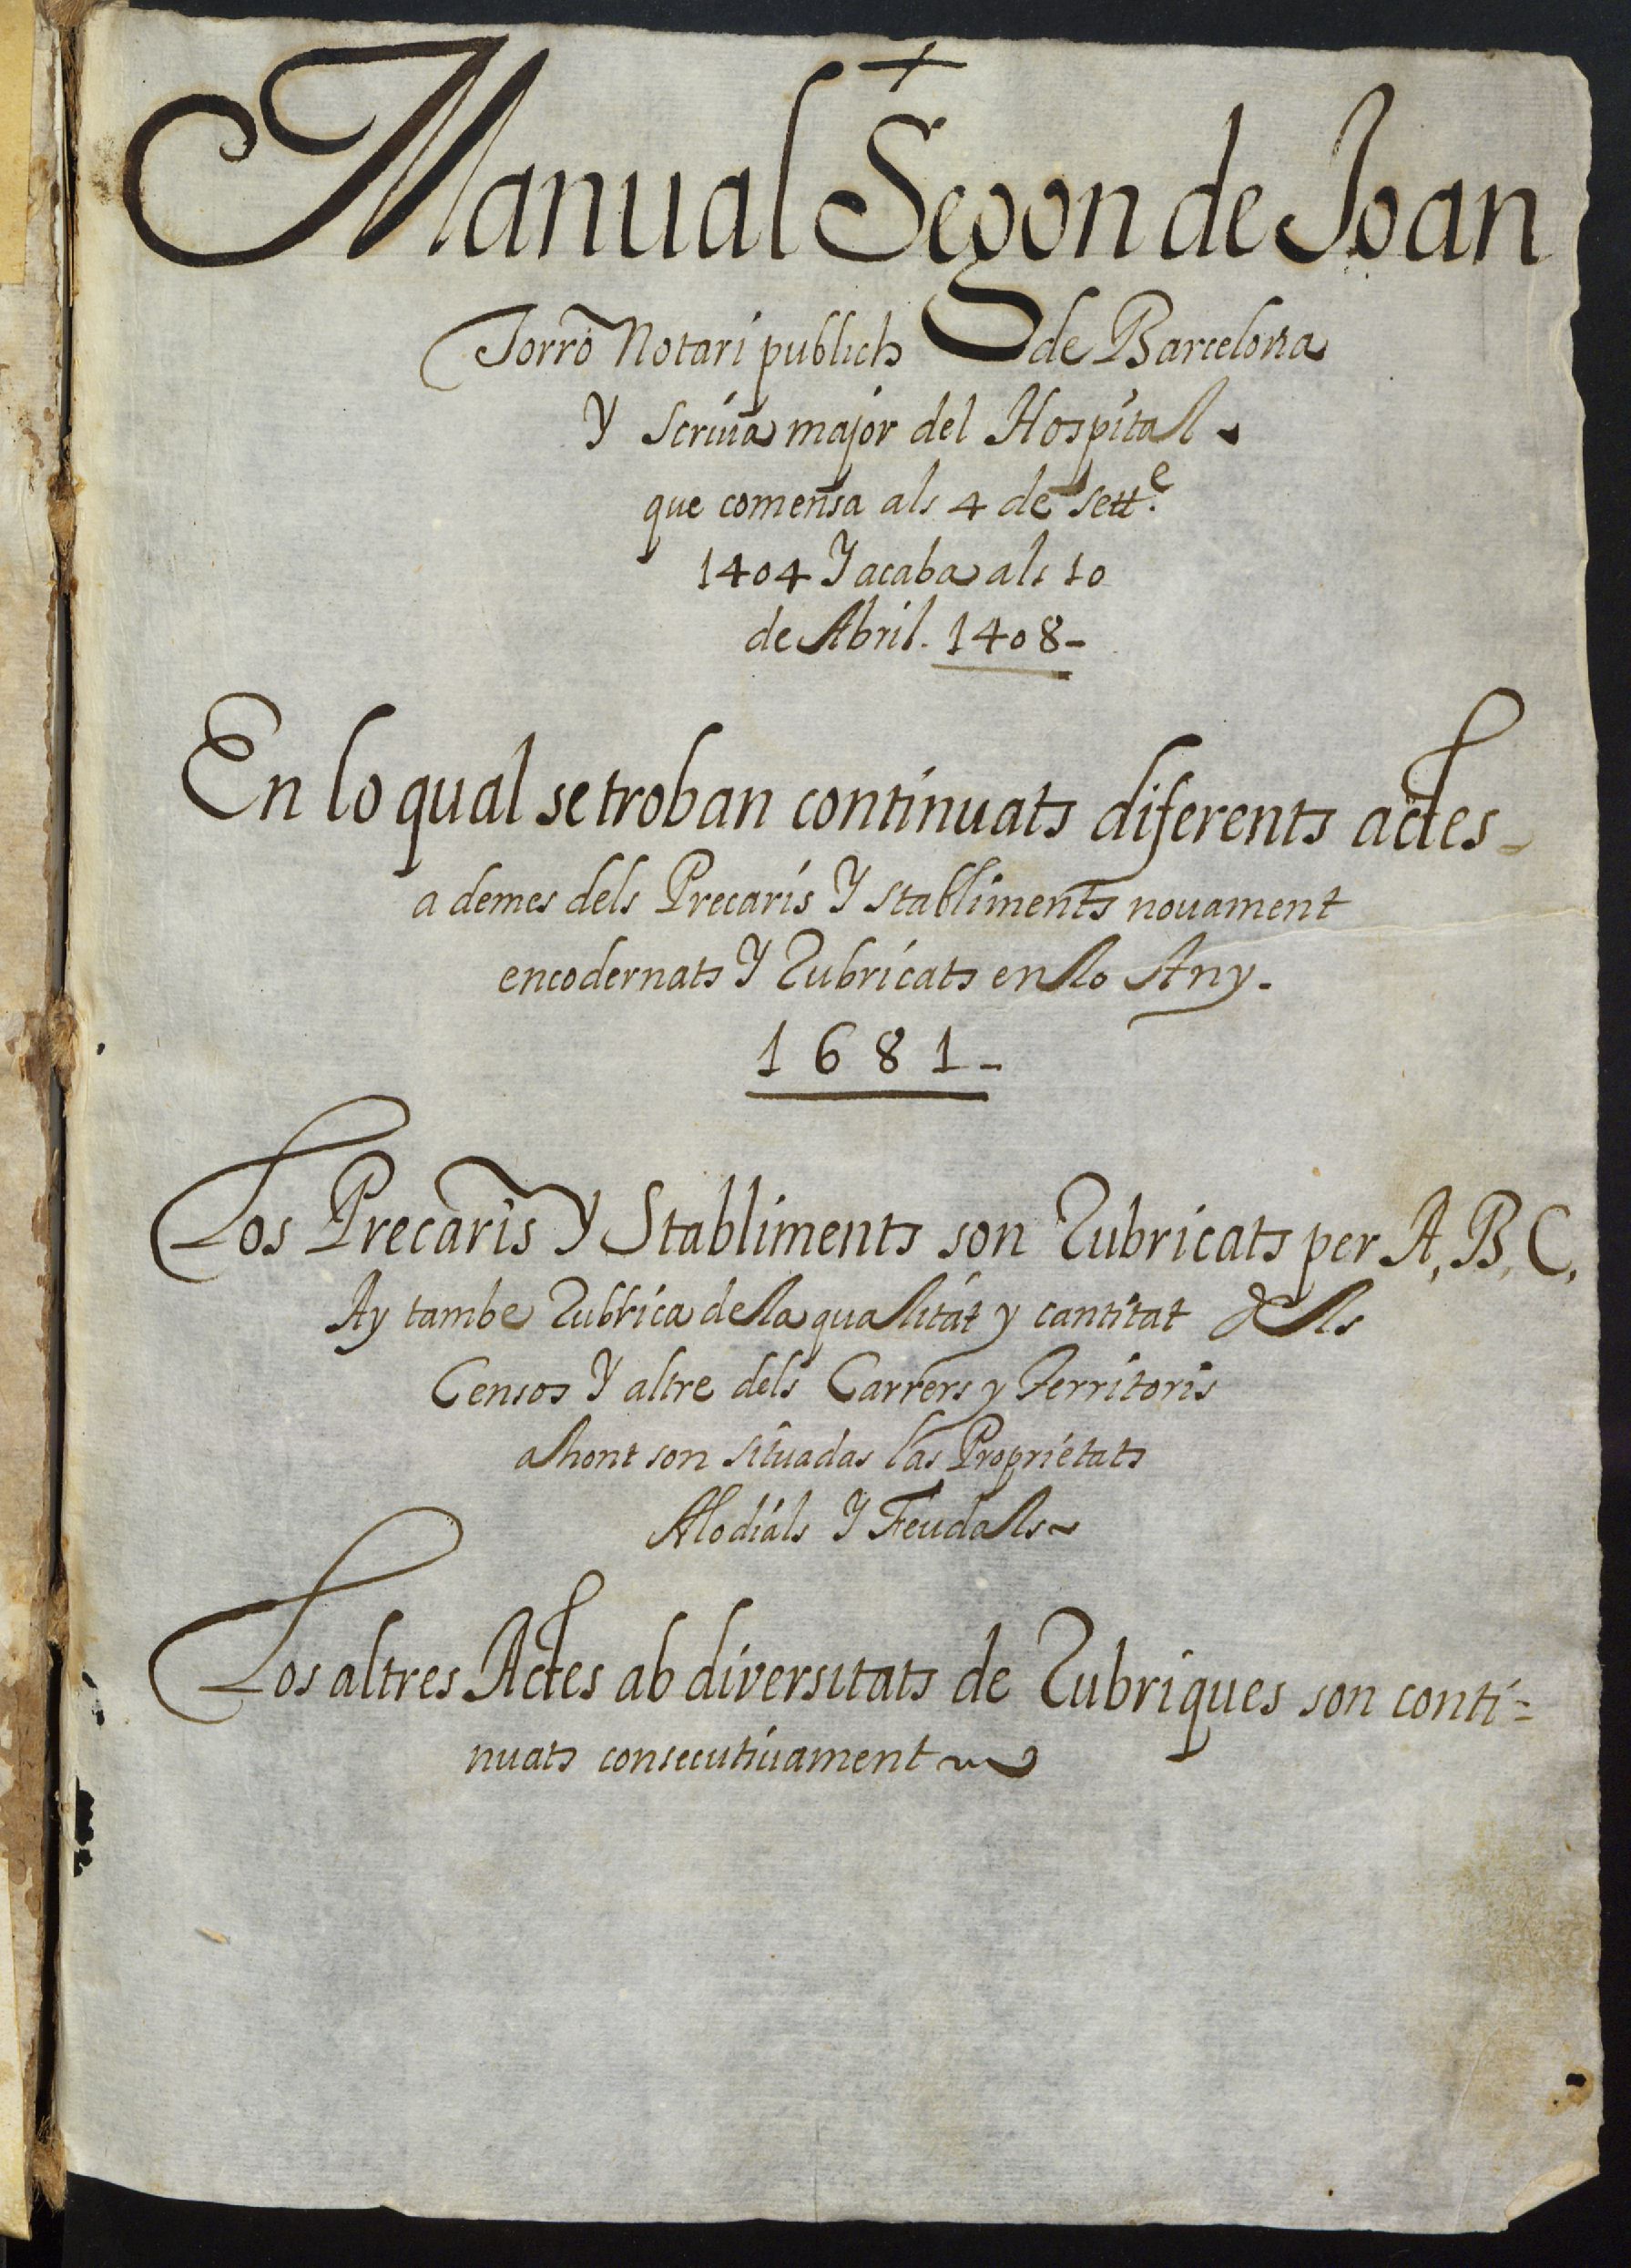 +
Manual Segon de Joan
Torró Notari publich de Barcelona
Y Scrivà major del Hospital
que comensa als 4 de Sett.e
1404 Y acaba als 10
de Abril. 1408-
En lo qual se troban continuats diferents actes
a demes dels Precaris Y Stabliments novament
encodernats Y Rubricats en lo Any.
1681-
Los Precaris Y Stabliments son Rubricats per A, B, C,
Ay tambe Rubrica de la qualitat y cantitat dels
Censos Y altre dels Carrers y Territoris
ahont son situadas las Proprietats
Alodials Y Feudals
Los altres Actes ab diversitats de Rubriques son conti=
nuats consecutivament